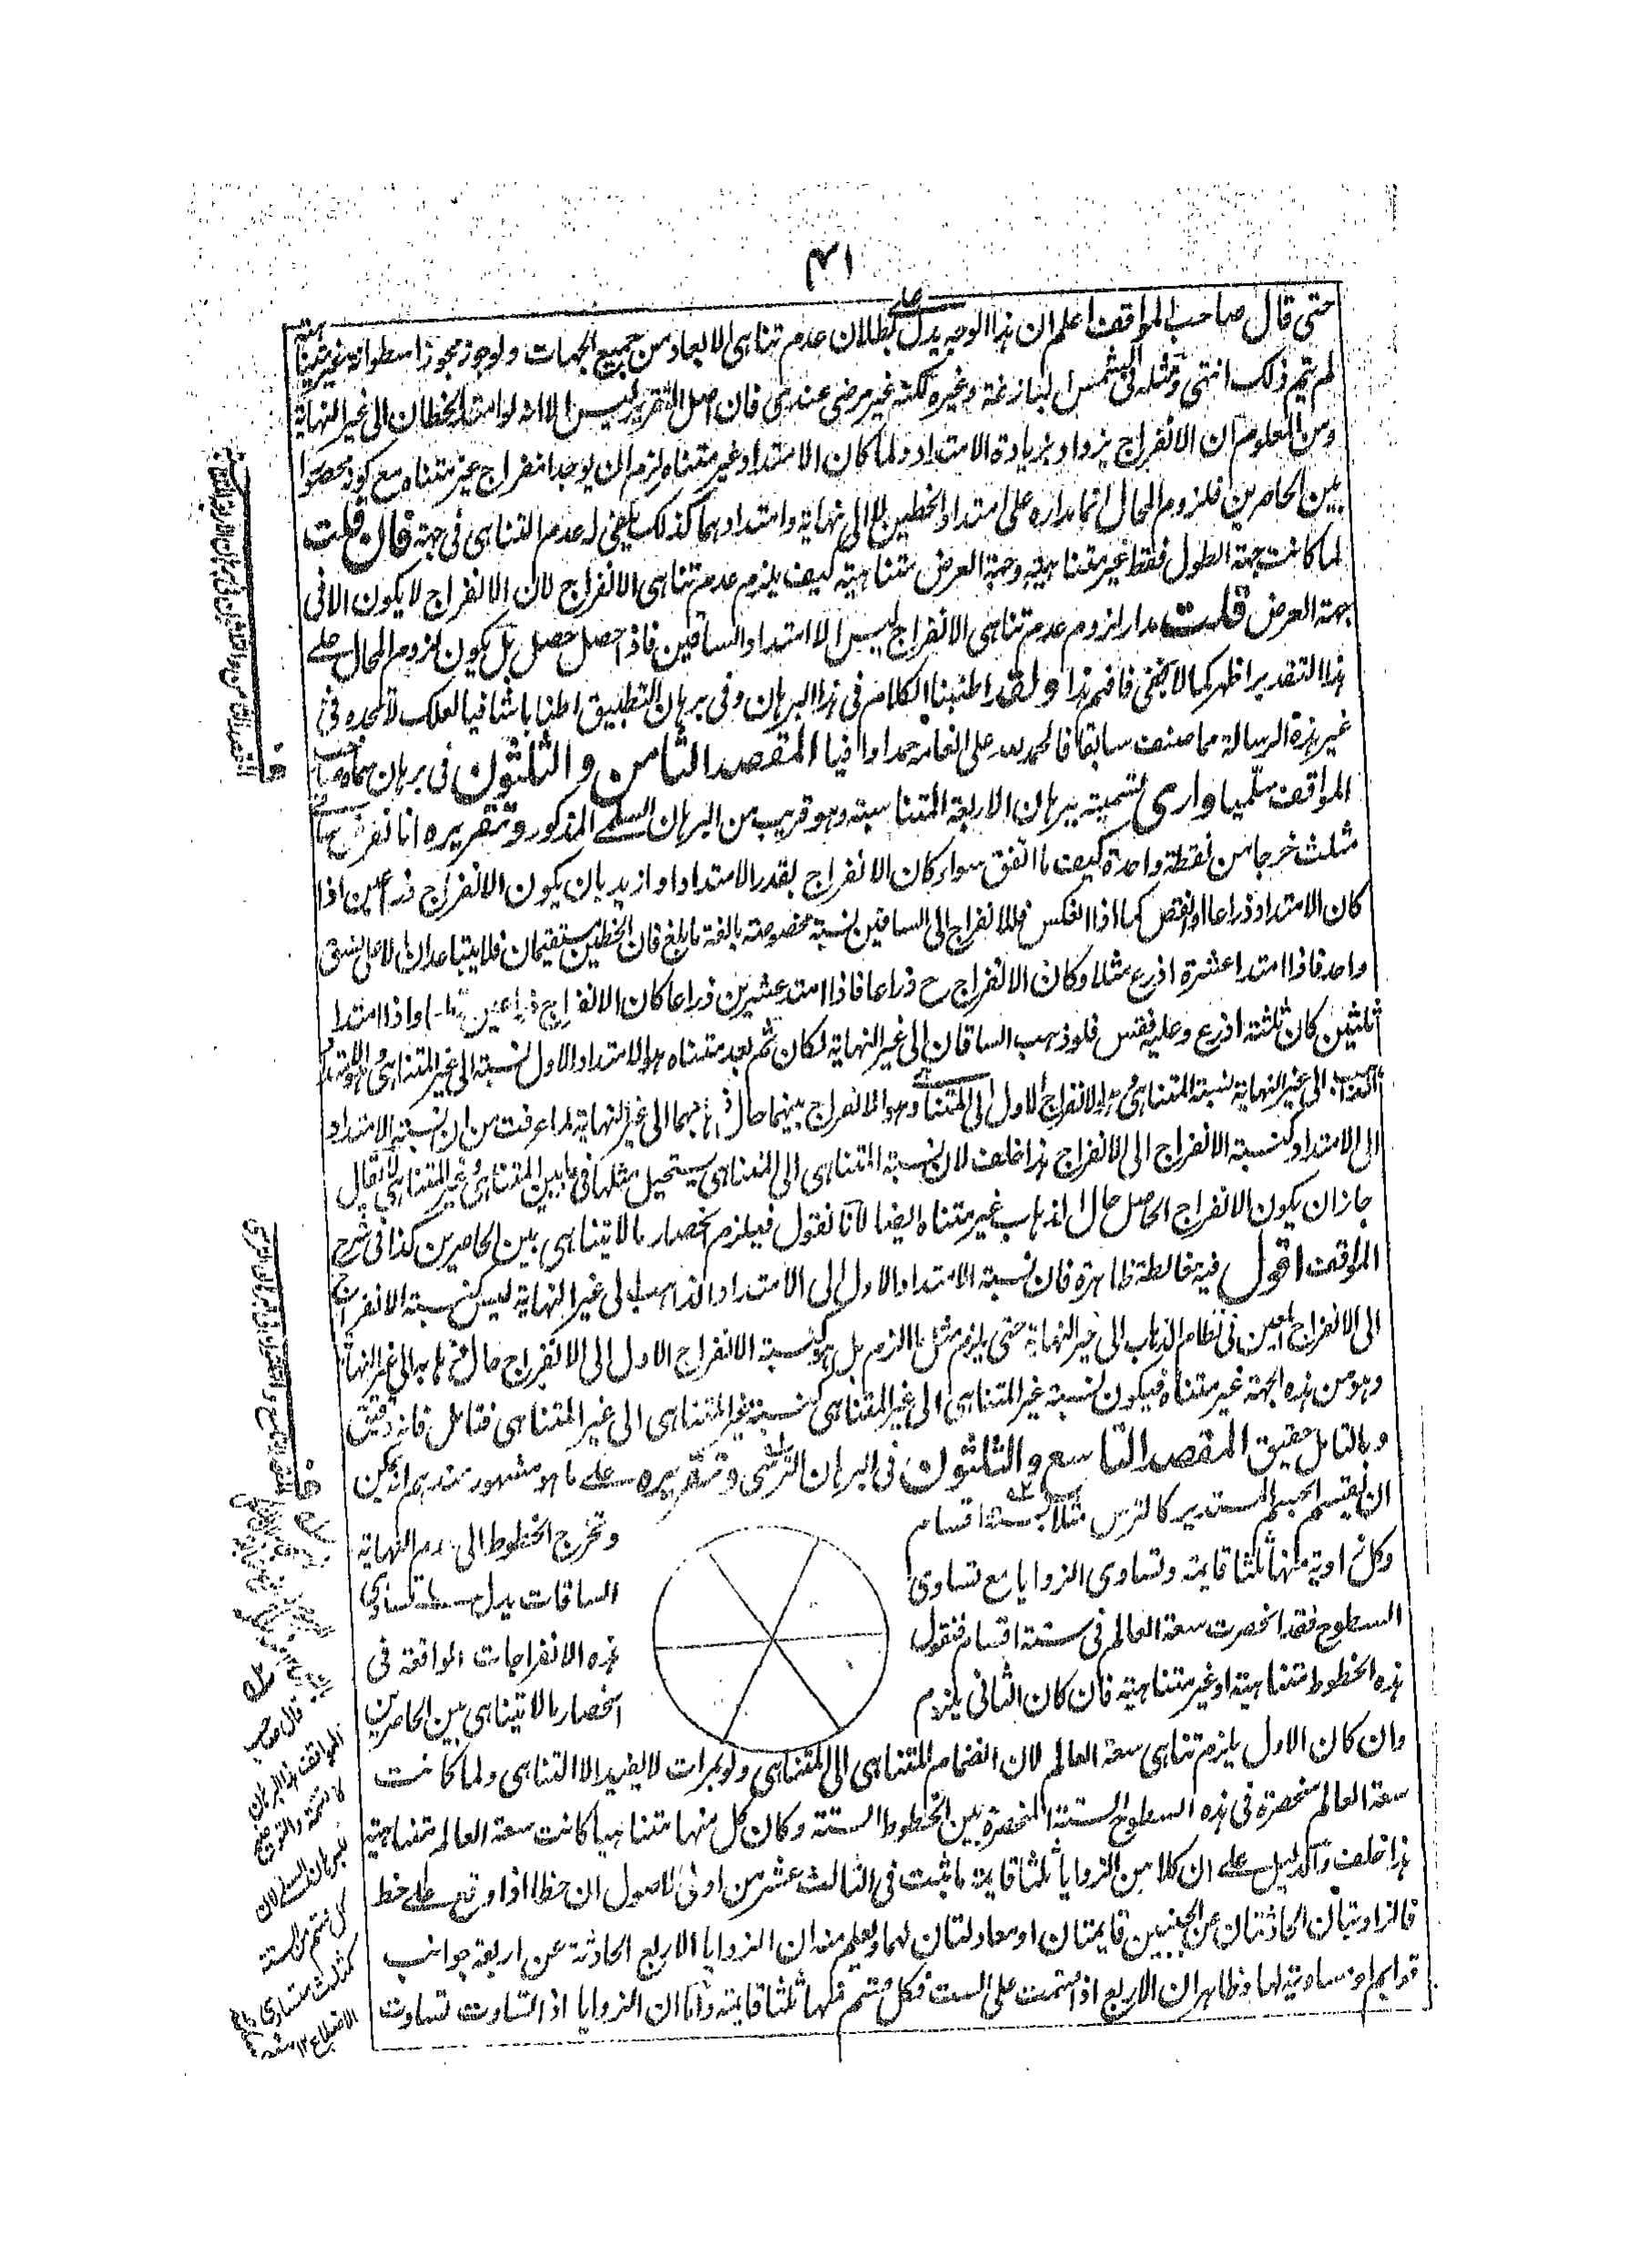 ٤١
حتى قال صاحب المواقف اعلم ان هذا الوجه يدل على بطلان عدم تناهى الابعاد من جميع الجهات ولو جوز مجوز اسطوانة غير متناهية
لم يتم ذلك انتهى ومثله فى الشمس البازغة وغيره لكنه غير مرضى عندى فان اصل التقرير ليس الا انه لو امتد الخطان الى غير النهاية
ومن المعلوم ان الانفراج يزداد بزيادة الامتداد ولما كان الامتداد غير متناه لزم ان يوجد انفراج غير متناه مع كونه محصورا
بين الحاصرين فلزوم المحال انما مداره على امتداد الخطين الى نهاية وامتدادهما كذلك يكفى له عدم التناهى فى جهة فان قلت
لما كانت جهة الطول فقط غير متناهية وجهة العرض متناهية كيف يلزم عدم تناهى الانفراج لان الانفراج لا يكون الا فى
جهة العرض قلت مدار لزوم عدم تناهى الانفراج ليس الا امتداد الساقين فاذا حصل حصل بل يكون لزوم المحال على
هذا التقدير اظهر كما لا يخفى فافهم هذا ولقد اطنبنا الكلام فى هذا البرهان وفى برهان التطبيق اطنابا شافيا لعلك لا تجده فى
غير هذه الرسالة مما صنف سابقا فالحمد لله على انعامه حمدا وافيا المقصد الثامن والثلثون فى برهان سماه صاحب
المواقف سلميا وارى تسميته ببرهان الاربعة المتناسبة وهو قريب من البرهان السلمى المذكور وتقريره انا نفرض ساقى
مثلث خرجا من نقطة واحدة كيف ما اتفق سواء كان الانفراج بقدر الامتداد او ازيد بان يكون الانفراج ذراعين اذا
كان الامتداد ذراعا او انقص كما اذا انعكس فللانفراج الى الساقين نسبة مخصوصة بالغة ما بلغ فان الخطين مستقيمان فلا يتباعدان الا على نسق
واحد فاذا امتدا عشرة اذرع مثلا وكان الانفراج ح ذراعا فاذا امتدا عشرين ذراعا كان الانفراج ذراعين واذا امتدا
ثلثين كان ثلثة اذرع وعليه فقس فلو ذهب الساقان الى غير النهاية لكان ثم بعد متناه هو الامتداد الاول نسبته الى غير المتناهى وهو الامتداد
الذاهب الى غير النهاية نسبة المتناهى وهو الانفراج الاول الى المتناهى وهو الانفراج بينهما حال ذهابهما الى غير النهاية لما عرفت من ان نسبة الامتداد
الى الامتداد كنسبة الانفراج الى الانفراج هذا خلف لان نسبة المتناهى الى المتناهى يستحيل مثلها فى ما بين المتناهى وغير المتناهى لا يقال
جاز ان يكون الانفراج الحاصل حال الذهاب غير متناه ايضا لانا نقول فيلزم انحصار ما لا يتناهى بين الحاصرين كذا فى شرح
المواقف اقول فيه مغالطة ظاهرة فان نسبة الامتداد الاول الى الامتداد الذاهب الى غير النهاية ليس كنسبة الانفراج
الى الانفراج المعين فى نظام الذهاب الى غير النهاية حتى يلزم مثل ما الزم بل هو كنسبة الانفراج الاول الى الانفراج حال ذهابه الى غير النهاية
وهو من هذه الجهة غير متناه فيكون نسبة غير المتناهى الى غير المتناهى كنسبة غير المتناهى الى غير المتناهى فتامل فانه دقيق
وبالتامل حقيق المقصد التاسع والثلثون فى البرهان الترسى وتقريره على ما هو مشهور عندهم انه يمكن
ان نقسم الجسم المستدير كالترس مثلا بستة اقسام
وتخرج الخطوط الى عدم النهاية
وكل زاوية منها ثلثا قايمة وتساوى الزوايا مع تساوى
الساقات يدل على تساوى
السطوح فقد انحصرت سعة العالم فى ستة اقسام فنقول
هذه الانفراجات الواقعة فى
هذه الخطوط متناهية او غير متناهية فان كان الثانى يلزم
انحصار ما لا يتناهى بين الحاصرين
وان كان الاول يلزم تناهى سعة العالم لان انضمام المتناهى الى المتناهى ولو بمرات لا يفيد الا التناهى ولما كانت
سعة العالم منحصرة فى هذه السطوح الستة المنحصرة بين الخطوط الستة وكان كل منها متناهيا كانت سعة العالم متناهية
هذا خلف والدليل على ان كلا من الزوايا ثلثا قايمة ما ثبت فى الثالث عشر من اولى الاصول ان خطا اذا وقع على خط
فالزاويتان الحادثتان عن الجنبين قايمتان او معادلتان لهما ويعلم منه ان الزوايا الاربع الحادثة عن اربعة جوانب
قوايم او مساوية لها وظاهر ان الاربع اذا قسمت على الست فكل قسم منها ثلثا قايمة واما ان الزوايا اذا تساوت تساوت
قال صاحب
المواقف هذا البرهان
كالتتمة والتوضيح
للبرهان السلمى لان
كل قسم من الستة
كمثلث متساوى
الاضلاع ١٢ منه